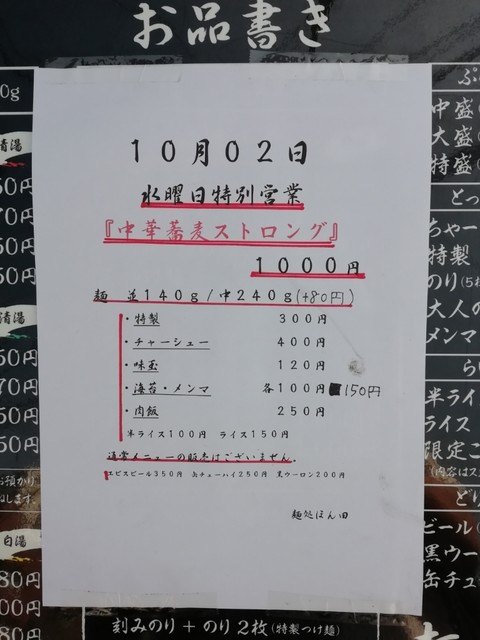 お品書き
10月02日
水曜日特別営業
『中華蕎麦ストロング』
1000円
麺 並140g/中240g(+80円)
・特製 300円
・チャーシュー 400円
・味玉 120円
・海苔・メンマ 各100円 150円
・肉飯 250円
半ライス100円 ライス150円
通常メニューの販売はございません。
エビスビール350円 缶チューハイ250円 黒ウーロン200円
麺処ほん田
0g
清湯
50円
70円
50円
50円
清湯
50円
70円
50円
50円
お預かり
ねします。
白湯
80円
00円
80円
中盛(
大盛(
特盛(
とっ
ちゃー
特製
のり(5
大人の
メンマ
半ライ
ライス
限定ご
(内容はス
どり
ビール(
黒ウー
缶チュ
刻みのり+のり2枚(特製つけ麺)